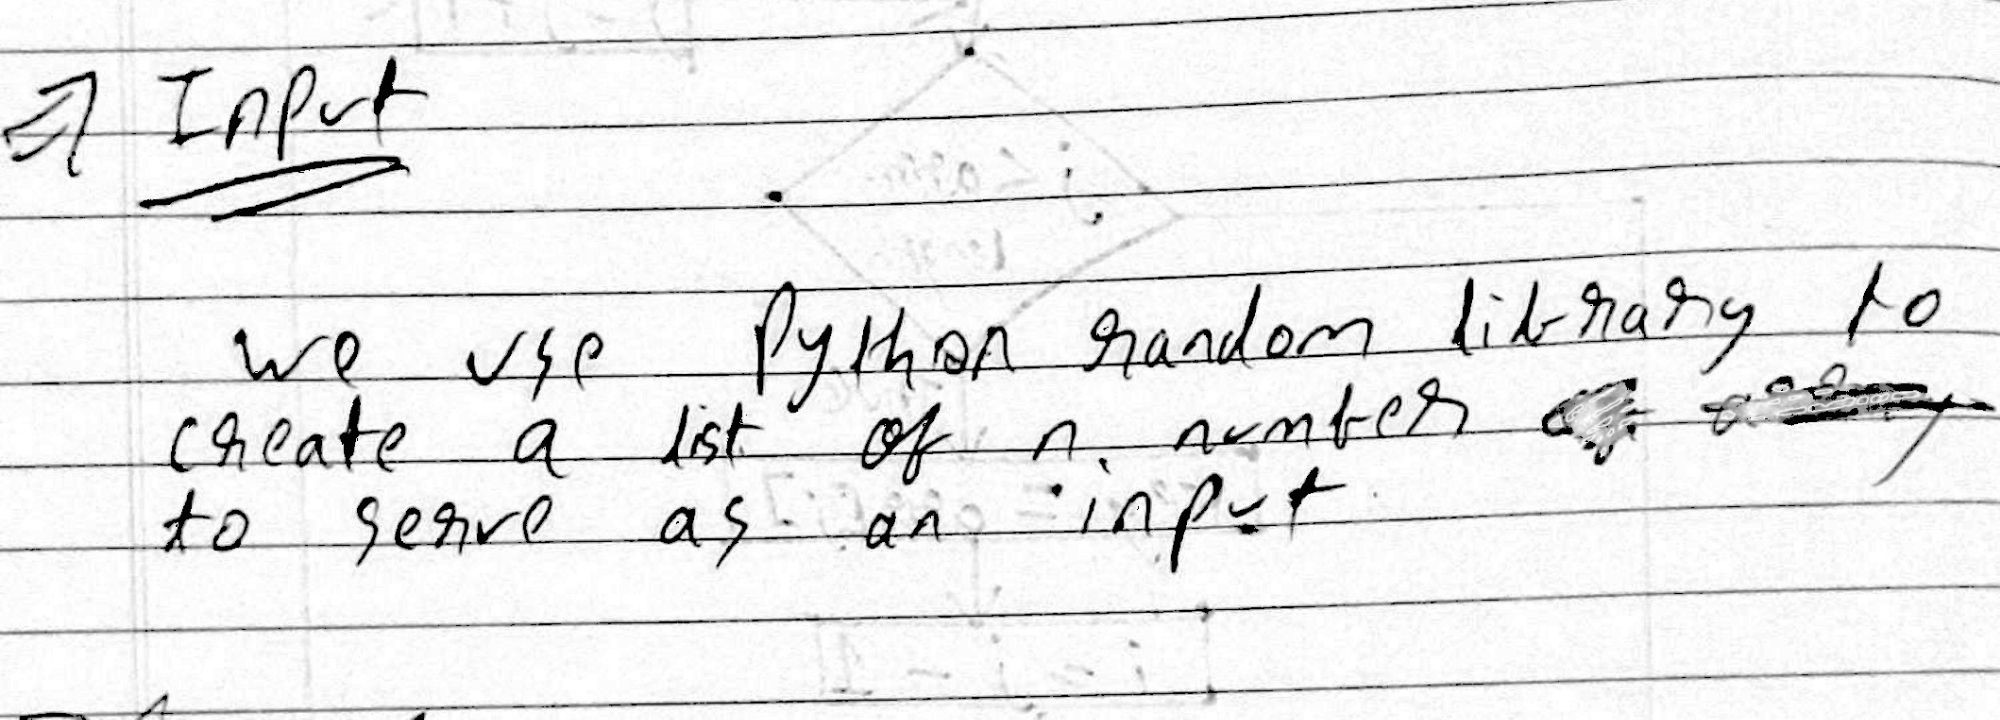 ⇒ Input
we use Python random library to
create a list of n number
to serve as an input